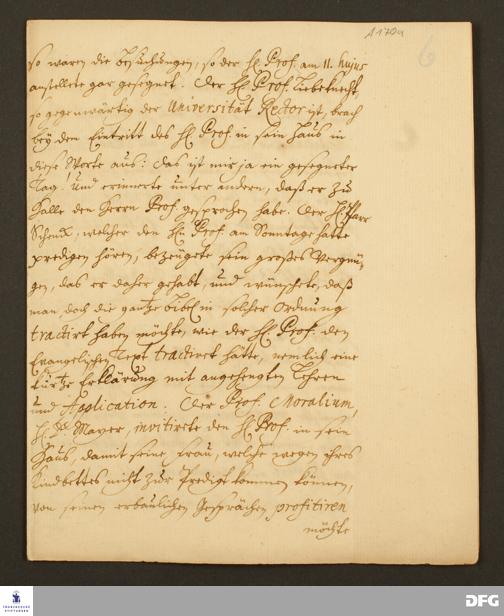 A 170a
6
so waren die Besuchungen, so der H. Prof. am 11. hujus
anstellete gar gesegnet. Der H. Prof. Liebknecht,
so gegenwärtig der Universität Rector ist, brach
bey dem Eintritt des H. Prof. in sein Haus in
diese Worte aus: das ist mir ja ein gesegneter
Tag. Und erinnerte unter andern, daß er zu
Halle den Herrn Prof. gesprochen habe. Der H. Pfarr
welcher den H. Prof. am Sonntage hatte
predigen hören, bezeugete sein großes Vergnü-
gen, das er daher gehabt, und wünschete, daß
man doch die gantze Bibel in solcher Ordnung
tractirt haben möchte, wie der H. Prof. den
Evangelischen Text tractiret hätte, nemlich eine
kurtze Erklärung mit angehengten Lehren
und Application. Der Prof. Moralium,
H. Dr. Mayer, invitirete den H. Prof. in sein
Haus, damit seine Frau, welche wegen ihres
Kindbettes nicht zur Predigt kommen können,
von seinen erbaulichen Gesprächen profitiren
möchte
FRANCKESCHE
STIFTUNGEN
DFG